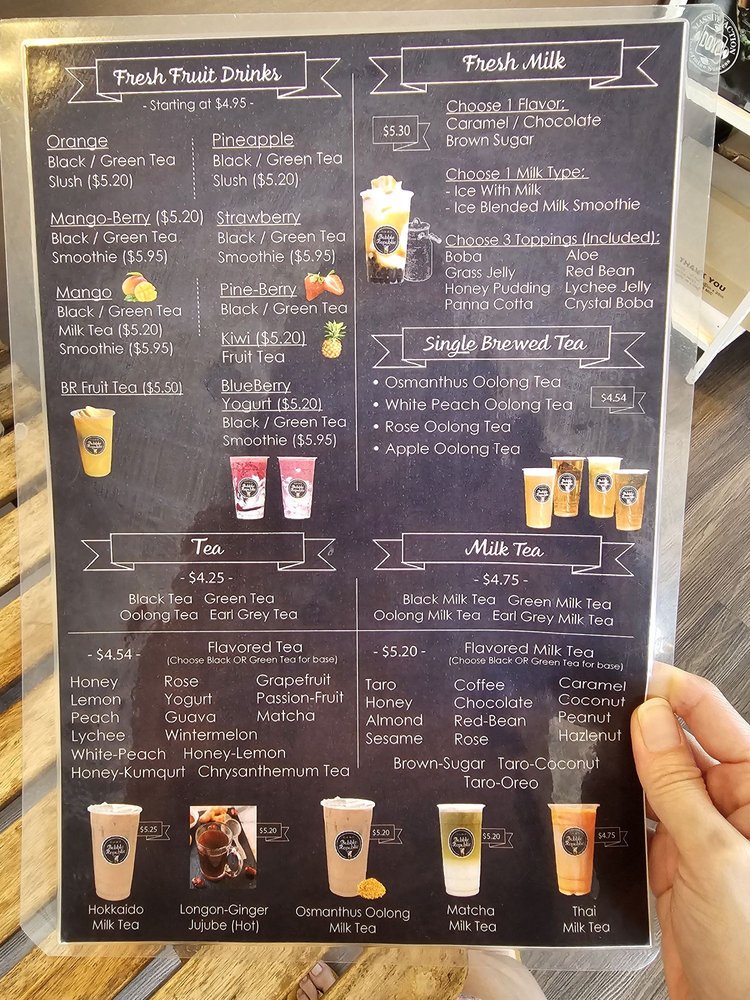 Fresh Fruit Drinks
- Starting at $4.95 -
Orange
Black / Green Tea
Slush ($5.20)
Pineapple
Black / Green Tea
Slush ($5.20)
Mango-Berry ($5.20)
Black / Green Tea
Smoothie ($5.95)
Strawberry
Black / Green Tea
Smoothie ($5.95)
Mango
Black / Green Tea
Milk Tea ($5.20)
Smoothie ($5.95)
Pine-Berry
Black / Green Tea
Kiwi ($5.20)
Fruit Tea
BR Fruit Tea ($5.50)
BlueBerry
Yogurt ($5.20)
Black / Green Tea
Smoothie ($5.95)
Fresh Milk
$5.30
Choose 1 Flavor:
Caramel / Chocolate
Brown Sugar
Choose 1 Milk Type:
- Ice With Milk
- Ice Blended Milk Smoothie
Choose 3 Toppings (Included):
Boba Aloe
Grass Jelly Red Bean
Honey Pudding Lychee Jelly
Panna Cotta Crystal Boba
Bubble
Republic
Single Brewed Tea
• Osmanthus Oolong Tea
• White Peach Oolong Tea
• Rose Oolong Tea
• Apple Oolong Tea
$4.54
Tea
- $4.25 -
Black Tea Green Tea
Oolong Tea Earl Grey Tea
- $4.54 - Flavored Tea
(Choose Black OR Green Tea for base)
Honey Rose Grapefruit
Lemon Yogurt Passion-Fruit
Peach Guava Matcha
Lychee Wintermelon
White-Peach Honey-Lemon
Honey-Kumqurt Chrysanthemum Tea
Milk Tea
- $4.75 -
Black Milk Tea Green Milk Tea
Oolong Milk Tea Earl Grey Milk Tea
- $5.20 - Flavored Milk Tea
(Choose Black OR Green Tea for base)
Taro Coffee Caramel
Honey Chocolate Coconut
Almond Red-Bean Peanut
Sesame Rose Hazlenut
Brown-Sugar Taro-Coconut
Taro-Oreo
$5.25
Hokkaido
Milk Tea
$5.20
Longon-Ginger
Jujube (Hot)
$5.20
Osmanthus Oolong
Milk Tea
$5.20
Matcha
Milk Tea
$4.75
Thai
Milk Tea
THANK YOU